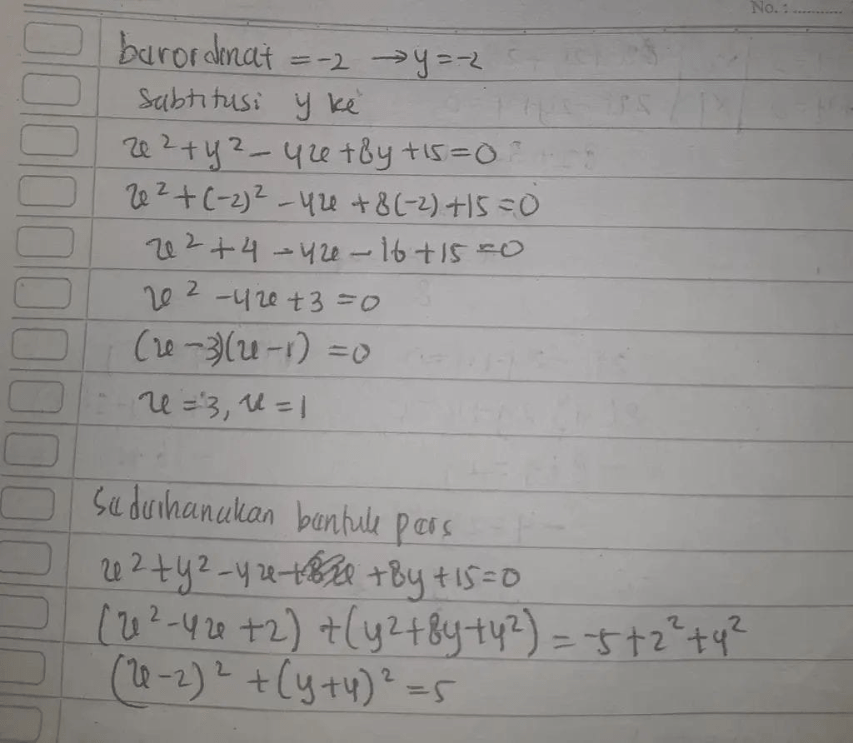 No. : ............
berordinat = -2 → y = -2
Subtitusi y ke
x² + y² - 4x + 8y + 15 = 0
x² + (-2)² - 4x + 8(-2) + 15 = 0
x² + 4 - 4x - 16 + 15 = 0
x² - 4x + 3 = 0
(x - 3)(x - 1) = 0
x = 3, x = 1
Sederhanakan bentuk pers
x² + y² - 4x + 8y + 15 = 0
(x² - 4x + 2) + (y² + 8y + 4²) = -5 + 2² + 4²
(x - 2)² + (y + 4)² = 5